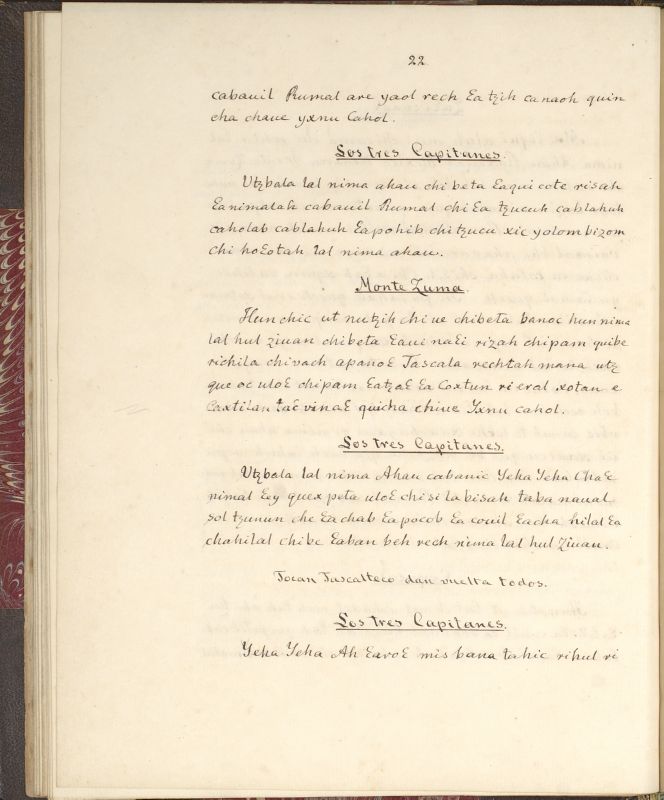 22
cabauil Rumal are yaol rech Ɛa tzih canaoh quin
cha chaue yxnu Cahol.
Los tres Capitanes.
Utzbala lal nima ahau chi beta Ɛaqui cote risah
Ɛanimalah cabauil Rumal chi Ɛa tzucuh cablahuh
caholab cablahuh Ɛapohib chi tzucu xic yolom bizom
chi hoƐotah lal nima ahau.
Monte Zuma.
Hunchic ut nutzih chiue chibeta banoc hun nima
lal hul ziuan chibeta Ɛaui naƐi rizah chipam quibe
richila chivach apanoƐ Tascala rechtah mana utz
que oc uloƐ chipam ƐatzaƐ Ɛa Coxtun ri eral xotan e
Caxtilan vinaƐ quicha chiue Yxnu cahol.
Los tres Capitanes.
Utzbala lal nima Ahau cabanic Yeha Yeha ChaƐ
nimal Ɛoy quex peta uloƐ chi si la bisah taba naual
sol tzunun che Ɛachab Ɛapocob Ɛa couil Ɛacha hilal Ɛa
chahilal chibe Ɛaban beh rech nima lal hul Ziuan.
Tocan Tascalteco dan vuelta todos.
Los tres Capitanes.
Yeha Yeha Ah ƐaroƐ mis bana tahic rihul ri